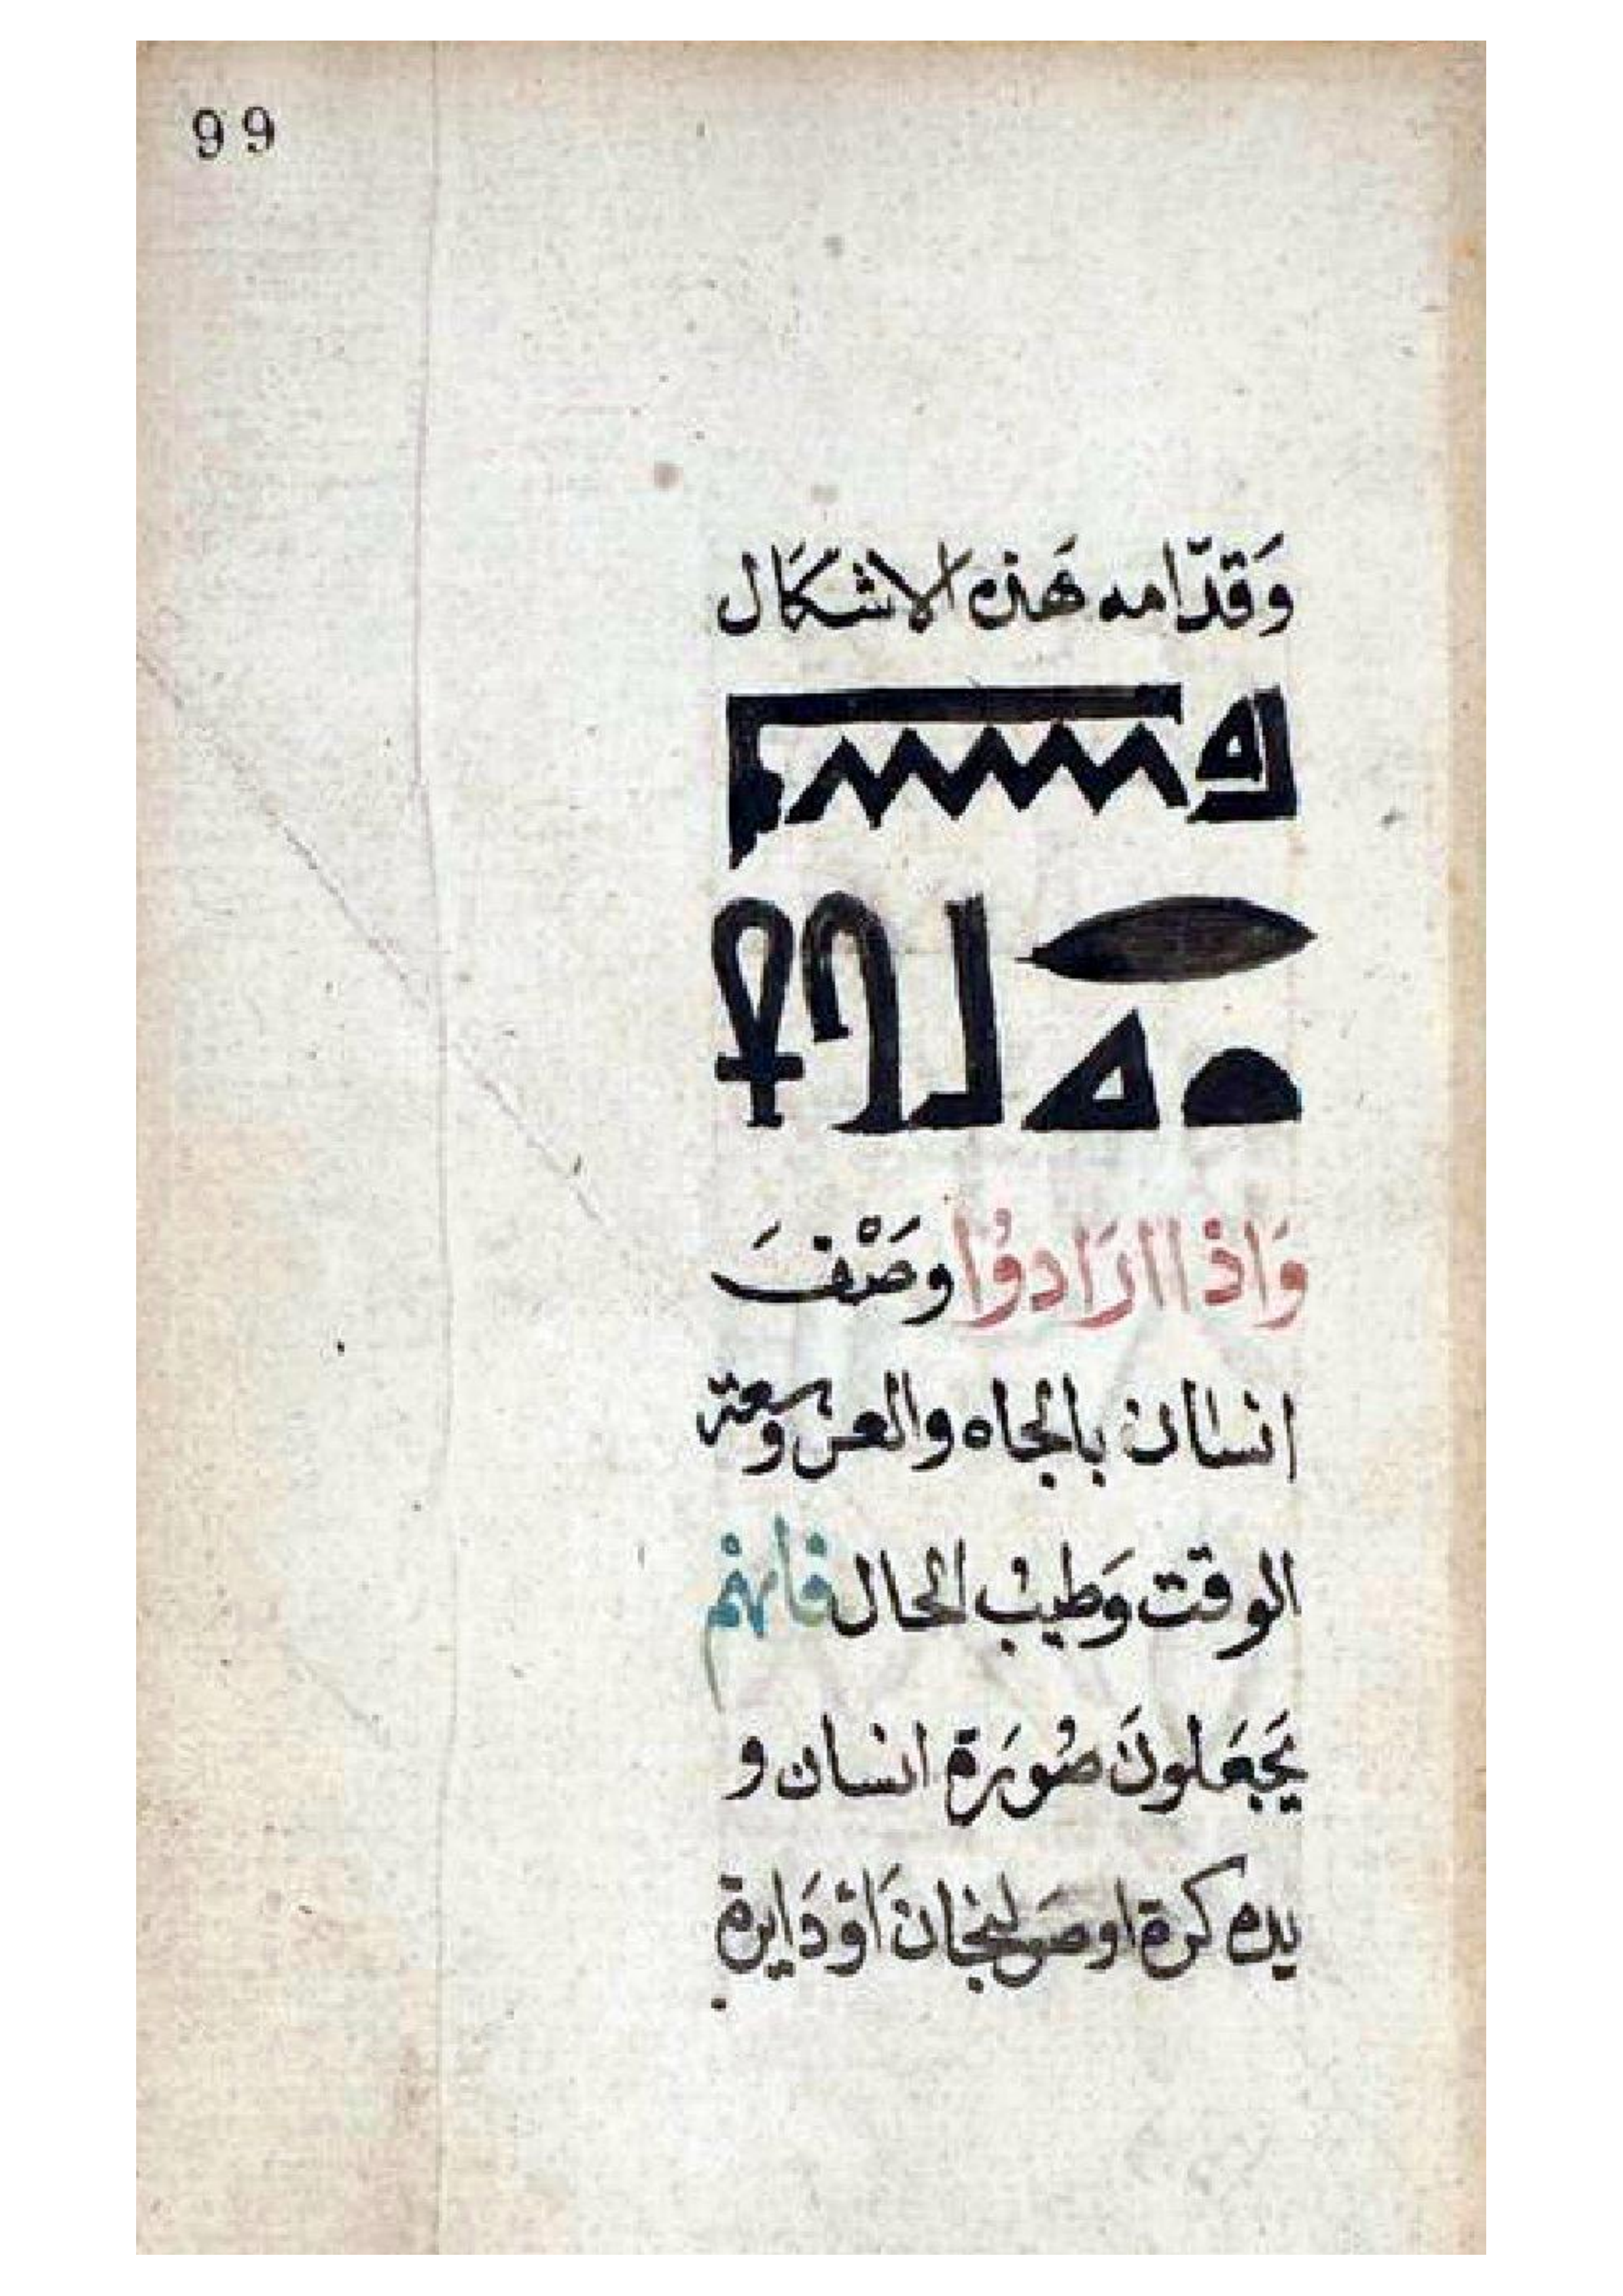 99
وَقدّامه هَذه الاشكَال
وَاذا ارَادوُا وصْفَ
انسان بالجاه والعز وسعة
الوقت وَطيب الحال فانهم
يجَعَلونَ صُورَة انسان و
بيده كرة او صَولجان اَوْ دَايرة